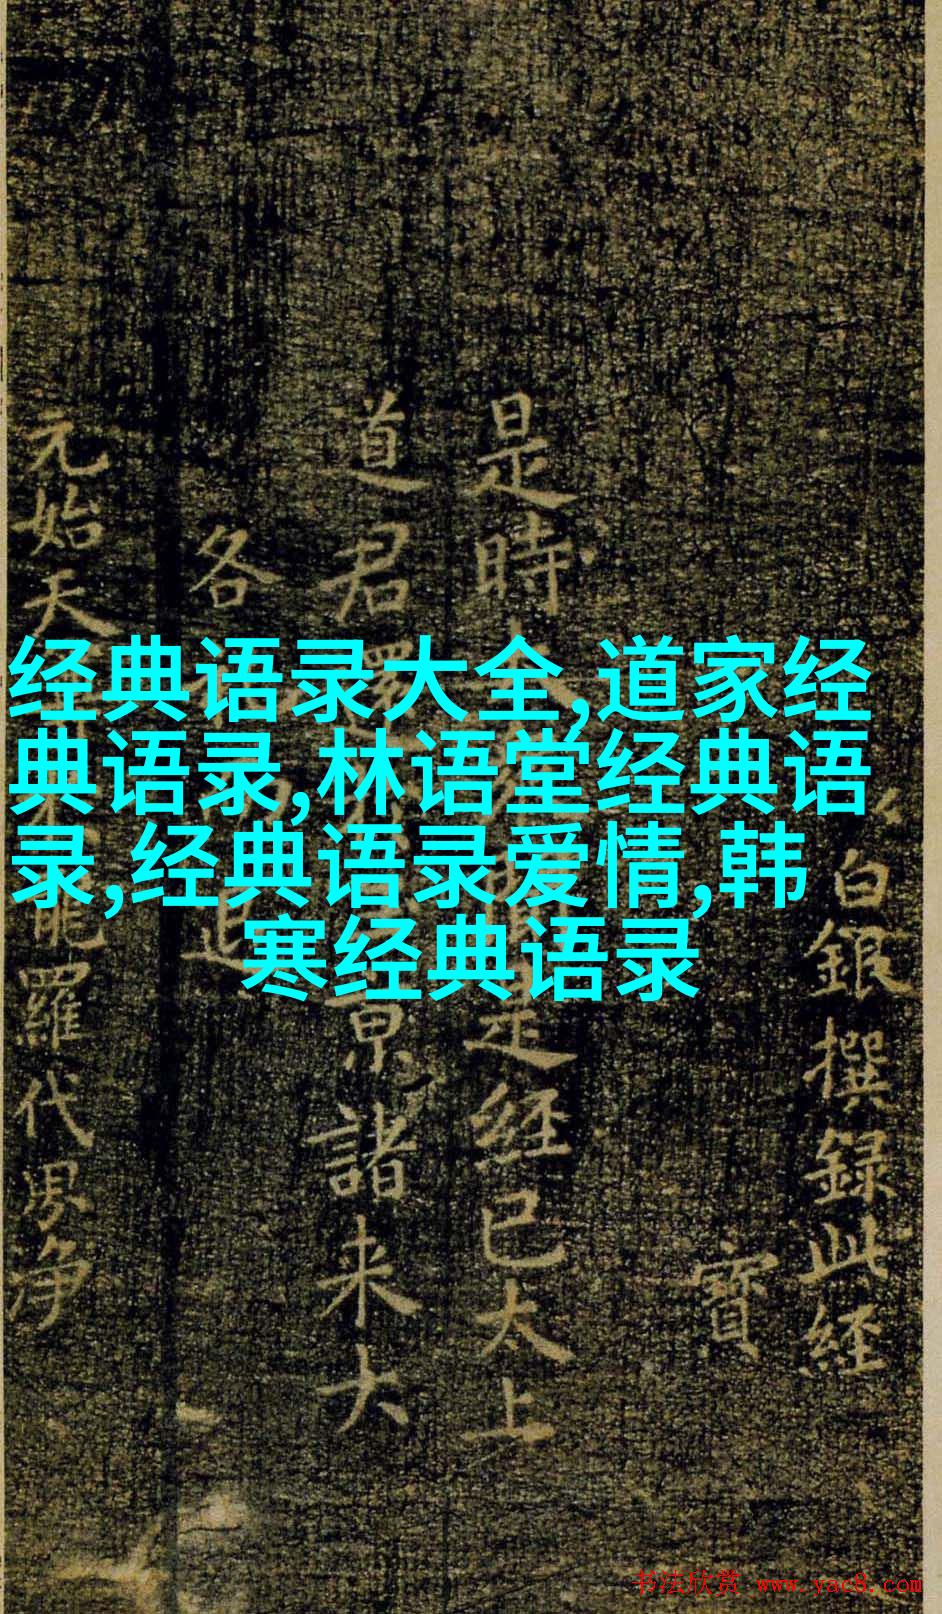 经典语录大全,道家经
典语录,林语堂经典语
录,经典语录爱情,韩
寒经典语录
白銀撰録此經
寶
是時
是經已太上
道君
京諸来大
各
追
元始天
羅代界净
书法欣赏 www.yac8.com